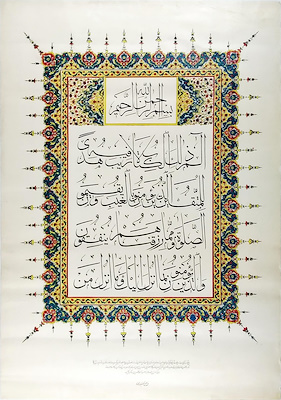 بسم الله الرحمن الرحيم
الم ذلك الكتاب لا ريب فيه هدى
للمتقين الذين يؤمنون بالغيب ويقيمون
الصلوة ومما رزقناهم ينفقون
والذين يؤمنون بما أنزل إليك وما أنزل من